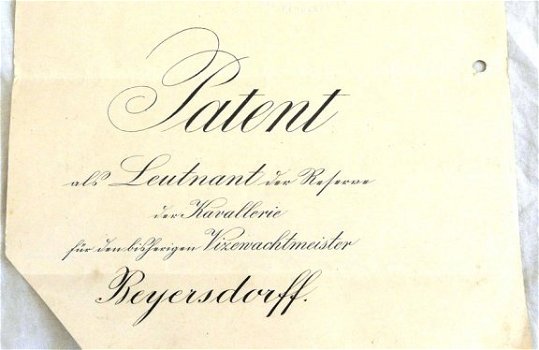 Patent
als Leutnant der Reserve
der Kavallerie
für den bisherigen Vizewachtmeister
Beyersdorff.